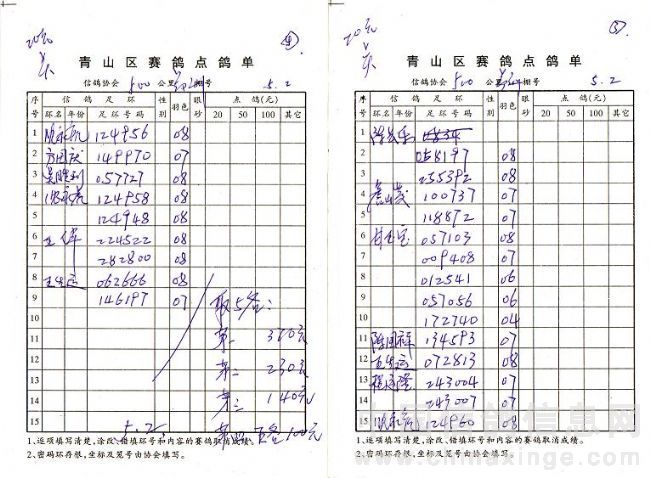 20元
④
青山区赛鸽点鸽单
信鸽协会 500 公里 棚号 5.2
序号 信鸽足环 性别 羽色 眼砂 点鸽(元)
环名 年份 足环号码 20 50 100 其它
1 124956 08
2 方国庆 149970 07
3 吴胜利 057727 08
4 124958 08
5 124948 08
6 王华 224522 08
7 282800 08
8 062666 08
9 146197 07 取5名:
10
11 第一 360元
12 第二 230元
13
14 第三 140元
15 5.2 第四 五各100元
1.逐项填写清楚,涂改、错填环号和内容的赛鸽取消成绩。
2.密码环存根,坐标及笼号由协会填写。
20元
⑤
青山区赛鸽点鸽单
信鸽协会 500 公里 棚号 5.2
序号 信鸽足环 性别 羽色 眼砂 点鸽(元)
环名 年份 足环号码 20 50 100 其它
1
2 058197 08
3 255392 08
4 100737 07
5 118872 07
6 057103 08
7 009408 07
8 012541 06
9 057056 06
10 172740 04
11 陈国祥 134593 07
12 072813 08
13 243004 07
14 243007 07
15 124960 08
1.逐项填写清楚,涂改、错填环号和内容的赛鸽取消成绩。
2.密码环存根,坐标及笼号由协会填写。
中国信鸽信息网
www.chinaxinge.com